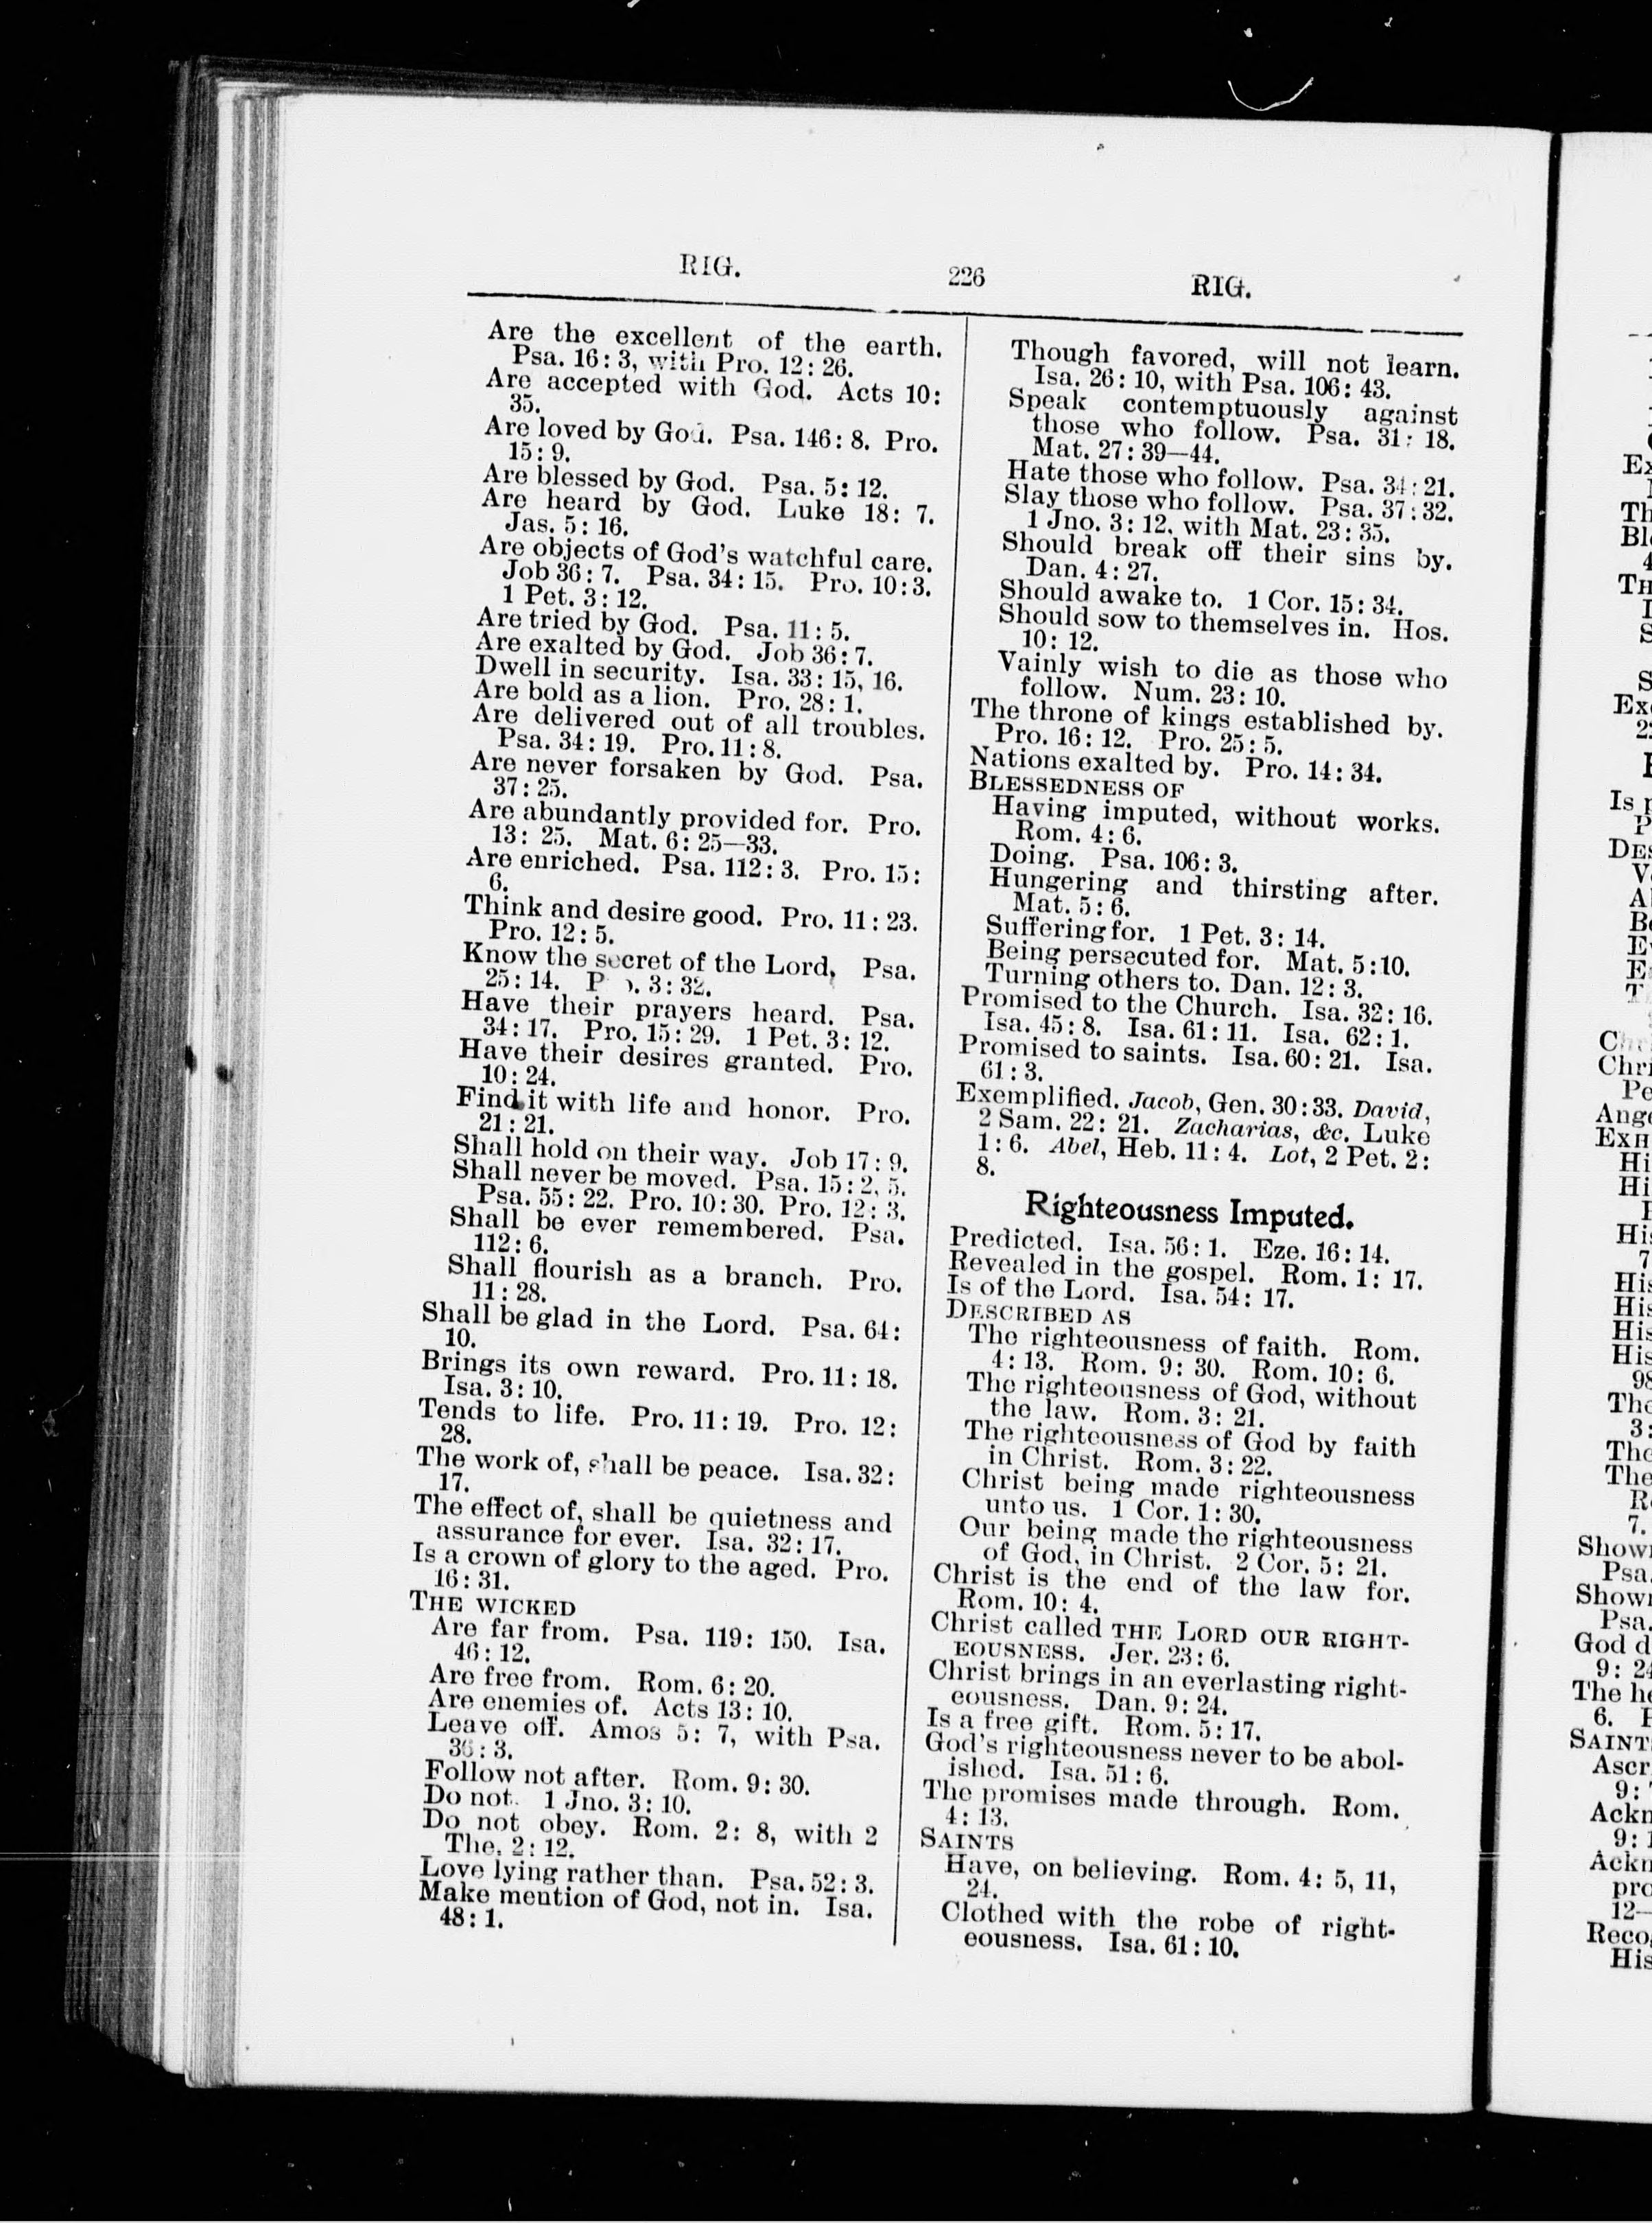 RIG. 226 RIG.
Are the excellent of the earth.
Psa. 16: 3, with Pro. 12: 26.
Are accepted with God. Acts 10:
35.
Are loved by God. Psa. 146: 8. Pro.
15: 9.
Are blessed by God. Psa. 5: 12.
Are heard by God. Luke 18: 7.
Jas. 5: 16.
Are objects of God's watchful care.
Job 36: 7. Psa. 34: 15. Pro. 10: 3.
1 Pet. 3: 12.
Are tried by God. Psa. 11: 5.
Are exalted by God. Job 36: 7.
Dwell in security. Isa. 33: 15, 16.
Are bold as a lion. Pro. 28: 1.
Are delivered out of all troubles.
Psa. 34: 19. Pro. 11: 8.
Are never forsaken by God. Psa.
37: 25.
Are abundantly provided for. Pro.
13: 25. Mat. 6: 25—33.
Are enriched. Psa. 112: 3. Pro. 15:
6.
Think and desire good. Pro. 11: 23.
Pro. 12: 5.
Know the secret of the Lord, Psa.
25: 14. P o. 3: 32.
Have their prayers heard. Psa.
34: 17. Pro. 15: 29. 1 Pet. 3: 12.
Have their desires granted. Pro.
10: 24.
Find it with life and honor. Pro.
21: 21.
Shall hold on their way. Job 17: 9.
Shall never be moved. Psa. 15: 2, 5.
Psa. 55: 22. Pro. 10: 30. Pro. 12: 3.
Shall be ever remembered. Psa.
112: 6.
Shall flourish as a branch. Pro.
11: 28.
Shall be glad in the Lord. Psa. 64:
10.
Brings its own reward. Pro. 11: 18.
Isa. 3: 10.
Tends to life. Pro. 11: 19. Pro. 12:
28.
The work of, shall be peace. Isa. 32:
17.
The effect of, shall be quietness and
assurance for ever. Isa. 32: 17.
Is a crown of glory to the aged. Pro.
16: 31.
THE WICKED
Are far from. Psa. 119: 150. Isa.
46: 12.
Are free from. Rom. 6: 20.
Are enemies of. Acts 13: 10.
Leave off. Amos 5: 7, with Psa.
36: 3.
Follow not after. Rom. 9: 30.
Do not. 1 Jno. 3: 10.
Do not obey. Rom. 2: 8, with 2
The. 2: 12.
Love lying rather than. Psa. 52: 3.
Make mention of God, not in. Isa.
48: 1.
Though favored, will not learn.
Isa. 26: 10, with Psa. 106: 43.
Speak contemptuously against
those who follow. Psa. 31: 18.
Mat. 27: 39—44.
Hate those who follow. Psa. 34: 21.
Slay those who follow. Psa. 37: 32.
1 Jno. 3: 12. with Mat. 23: 35.
Should break off their sins by.
Dan. 4: 27.
Should awake to. 1 Cor. 15: 34.
Should sow to themselves in. Hos.
10: 12.
Vainly wish to die as those who
follow. Num. 23: 10.
The throne of kings established by.
Pro. 16: 12. Pro. 25: 5.
Nations exalted by. Pro. 14: 34.
BLESSEDNESS OF
Having imputed, without works.
Rom. 4: 6.
Doing. Psa. 106: 3.
Hungering and thirsting after.
Mat. 5: 6.
Suffering for. 1 Pet. 3: 14.
Being persecuted for. Mat. 5: 10.
Turning others to. Dan. 12: 3.
Promised to the Church. Isa. 32: 16.
Isa. 45: 8. Isa. 61: 11. Isa. 62: 1.
Promised to saints. Isa. 60: 21. Isa.
61: 3.
Exemplified. Jacob, Gen. 30: 33. David,
2 Sam. 22: 21. Zacharias, &c. Luke
1: 6. Abel, Heb. 11: 4. Lot, 2 Pet. 2:
8.
Righteousness Imputed.
Predicted. Isa. 56: 1. Eze. 16: 14.
Revealed in the gospel. Rom. 1: 17.
Is of the Lord. Isa. 54: 17.
DESCRIBED AS
The righteousness of faith. Rom.
4: 13. Rom. 9: 30. Rom. 10: 6.
The righteousness of God, without
the law. Rom. 3: 21.
The righteousness of God by faith
in Christ. Rom. 3: 22.
Christ being made righteousness
unto us. 1 Cor. 1: 30.
Our being made the righteousness
of God, in Christ. 2 Cor. 5: 21.
Christ is the end of the law for.
Rom. 10: 4.
Christ called THE LORD OUR RIGHT-
EOUSNESS. Jer. 23: 6.
Christ brings in an everlasting right-
eousness. Dan. 9: 24.
Is a free gift. Rom. 5: 17.
God's righteousness never to be abol-
ished. Isa. 51: 6.
The promises made through. Rom.
4: 13.
SAINTS
Have, on believing. Rom. 4: 5, 11,
24.
Clothed with the robe of right-
eousness. Isa. 61: 10.